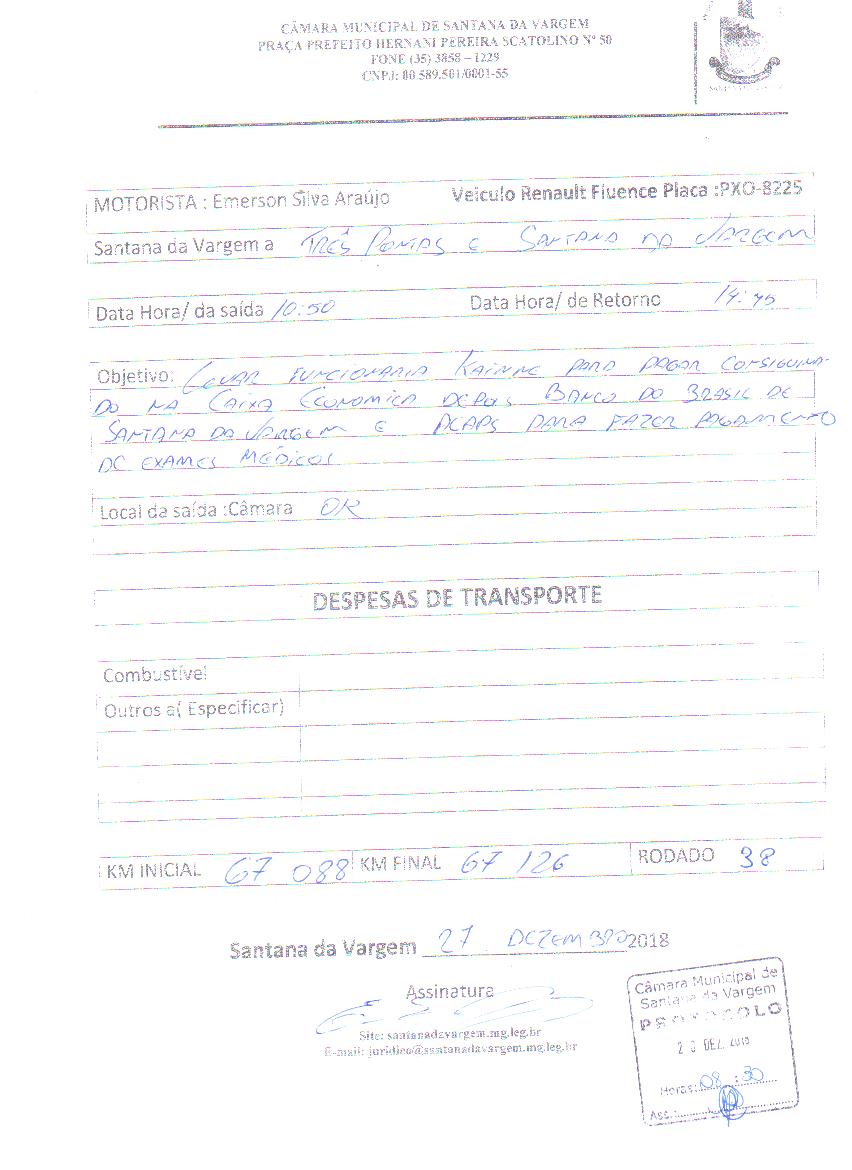 CÂMARA MUNICIPAL DE SANTANA DA VARGEM
PRAÇA PREFEITO HERNANI PEREIRA SCATOLINO Nº 50
FONE (35) 3858 – 1229
CNPJ: 00.589.501/0001-55
MOTORISTA : Emerson Silva Araújo Veiculo Renault Fluence Placa :PXO-8225
Santana da Vargem a TRÊS PONTAS E SANTANA DA VARGEM
Data Hora/ da saída 10:50 Data Hora/ de Retorno 14:45
Objetivo: LEVAR FUNCIONARIA KAINNE PARA PAGAR CONSIGUINA-
DO NA CAIXA ECONOMICA DEPOIS BANCO DO BRASIL DE
SANTANA DA VARGEM E PARA FAZER PAGAMENTO
DE EXAMES MÉDICOS
Local da saída :Câmara OK
DESPESAS DE TRANSPORTE
Combustível
Outros a( Especificar)
KM INICIAL 67 088 KM FINAL 67 126 RODADO 38
Santana da Vargem 27 DEZEMBRO 2018
Assinatura
Site: santanadavargem.mg.leg.br
E-mail: juridico@santanadavargem.mg.leg.br
Câmara Municipal de
Santana da Vargem
PROTOCOLO
DEZ.
Horas: 08 : 30
Ass.: